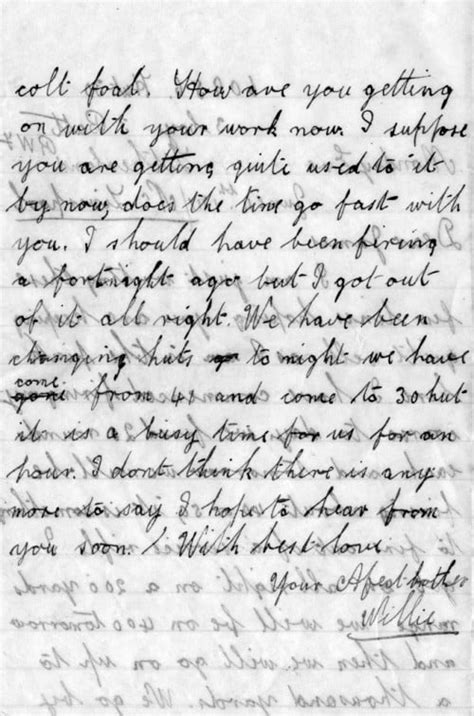 colt foal. How are you getting
on with your work now. I suppose
you are getting quite used to it
by now, does the time go fast with
you. I should have been firing
a fortnight ago but I got out
of it all right. We have been
changing huts to night we have
come from 41 and come to 30 hut
it is a busy time for us for an
hour. I dont think there is any
more to say I hope to hear from
you soon. With best love
Your Afect brother
Willie